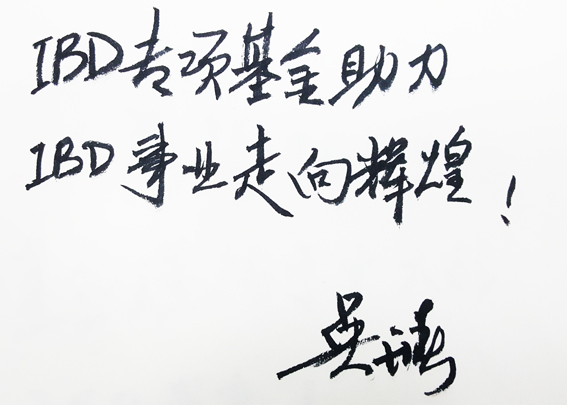 IBD专项基金助力
IBD事业走向辉煌！
吴